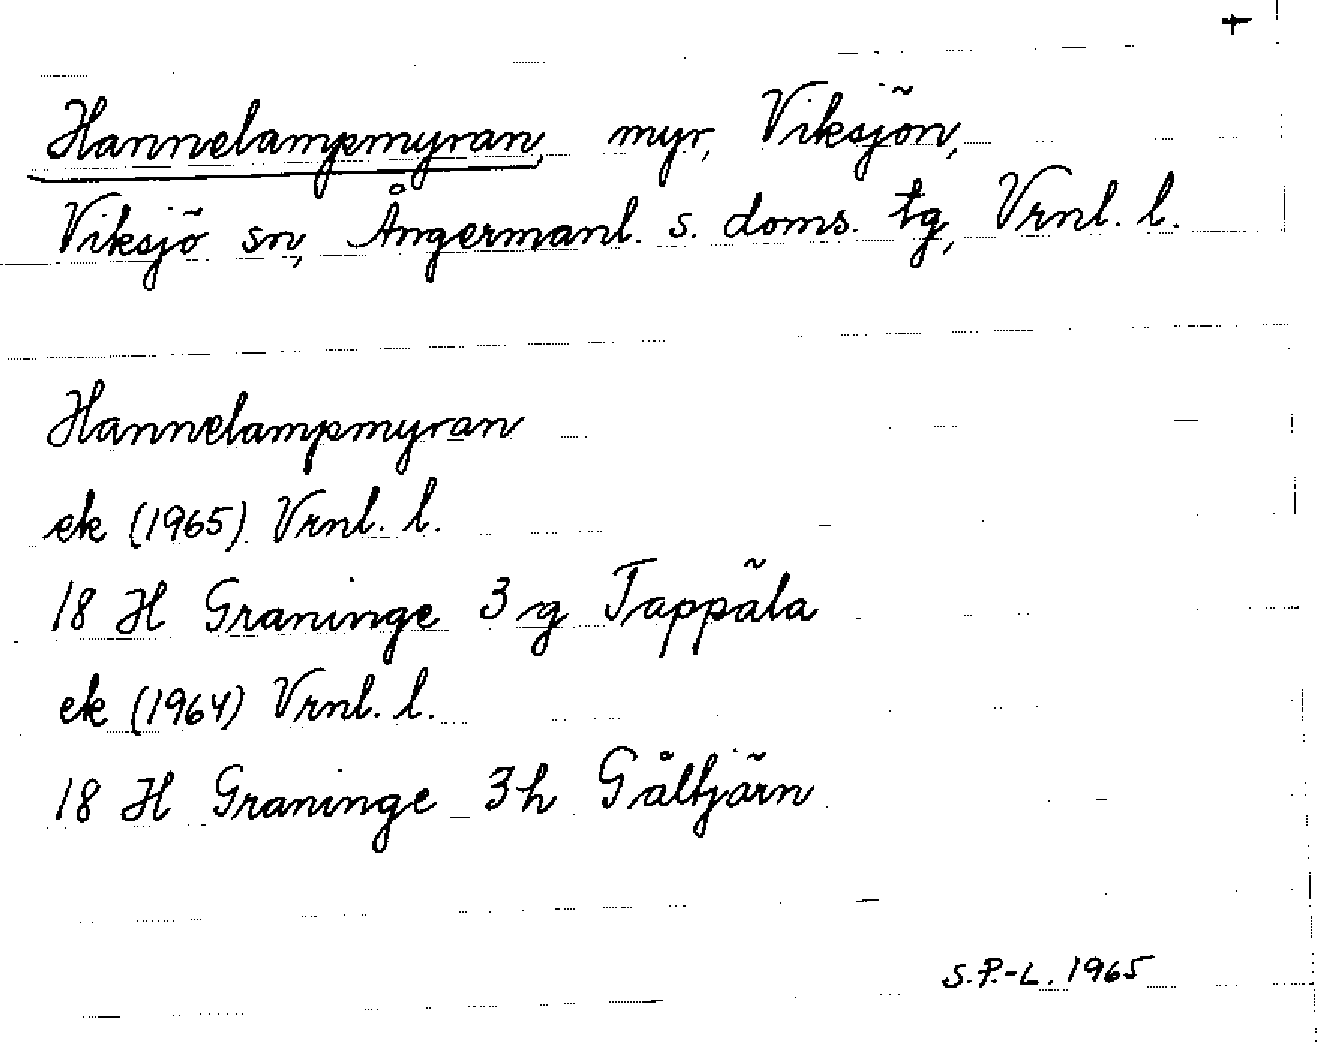 +
Hannelampmyran, myr, Viksjön,
Viksjö sn, Ångermanl. s. doms. tg, Vrnl. l.
Hannelampmyran
ek (1965) Vrnl. l.
18 H Graninge 3 g Tappäla
ek (1964) Vrnl. l.
18 H Graninge 3h Gåltjärn
S.P.-L. 1965